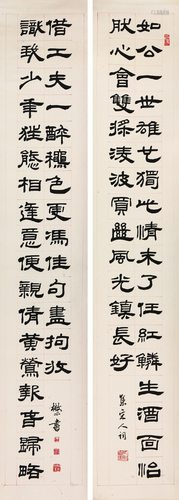 如公一世雄也獨此情未了任紅鱗生酒面怡
然心會雙採淩波賞幽風光鎮長好
集宋人詞
識我少年狂態相逢意便親倩黃鶯報音歸略
借工夫一醉穠色更馮佳句盡拘收
書